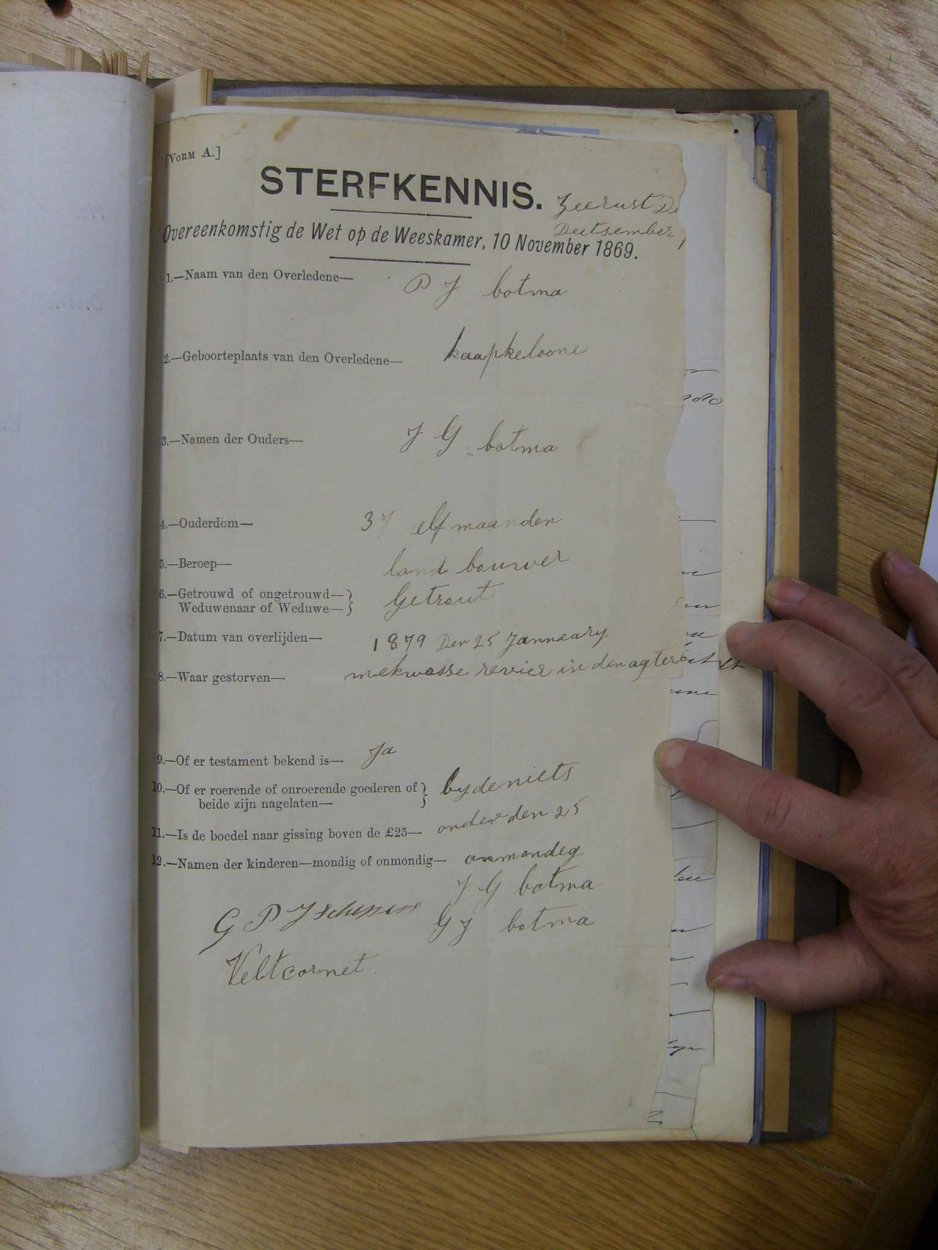 [VORM A.]
STERFKENNIS.
Zeerust De
Deetsember
Overeenkomstig de Wet op de Weeskamer, 10 November 1869.
1.—Naam van den Overledene— P J botma
2.—Geboorteplaats van den Overledene— kaapkeloone
3.—Namen der Ouders— J G botma
4.—Ouderdom— 37 elf maanden
5.—Beroep— land bouwer
6.—Getrouwd of ongetrouwd—} Getrout
Weduwenaar of Weduwe—}
7.—Datum van overlijden— 1879 Den 25 Janneary
8.—Waar gestorven— mekwasse revier in den agter
9.—Of er testament bekend is— Ja
10.—Of er roerende of onroerende goederen of} byde niets
beide zijn nagelaten—}
11.—Is de boedel naar gissing boven de £25— onder den 25
12.—Namen der kinderen—mondig of onmondig— onmondeg
J G botma
G P J
G J botma
Veltcornet